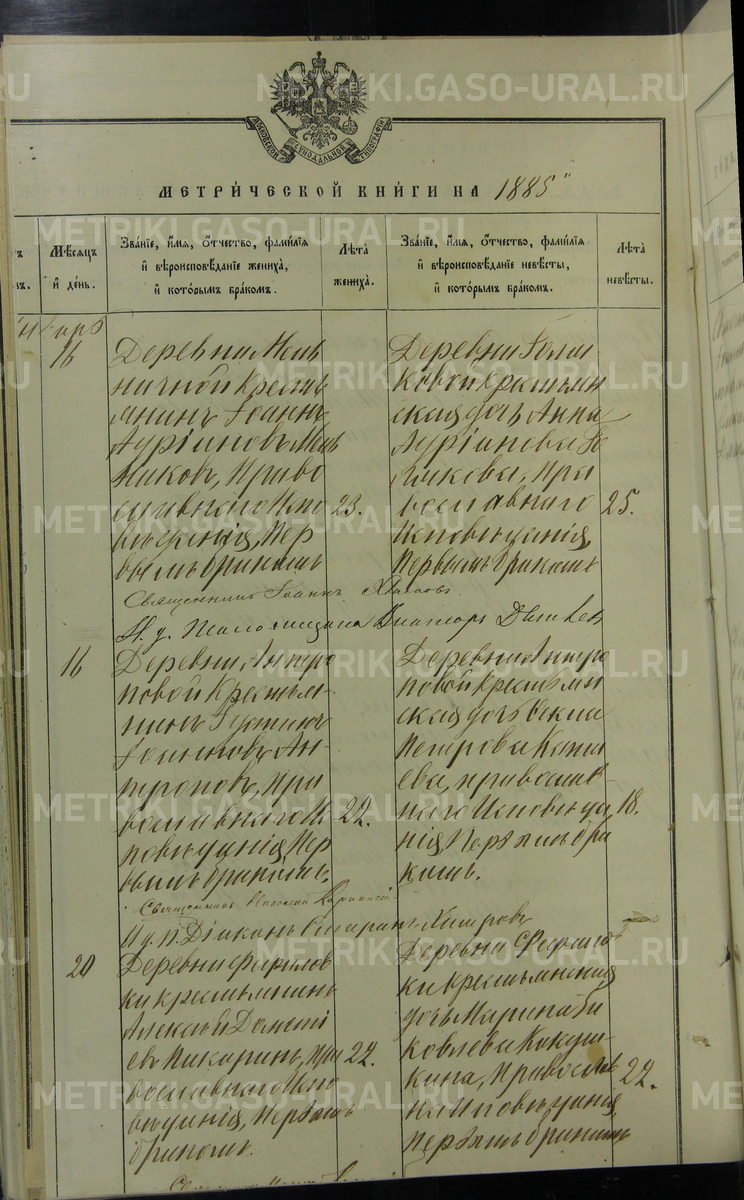 МОСКОВСКОЙ СѴНОДАЛЬНОЙ ТИПОГРАФІИ
МЕТРИ́ЧЕСКОЙ КНИ́ГИ НА 1885
Мѣсяцъ и день.
Зва́нїе, и́мя, ѻ҆́тчество, фами́лїя и вѣроисповѣ́данїе жениха̀, и кото́рымъ бра́комъ.
Лѣта̀ жениха̀.
Зва́нїе, и́мя, ѻ҆́тчество, фами́лїя и вѣроисповѣ́данїе невѣ́сты, и кото́рымъ бра́комъ.
Лѣта̀ невѣ́сты.
16
Деревни Мель
ничной кресть
янинъ Іоаннъ
Аурiановъ Мель
никовъ, Право
славнаго Испо
вѣданія, Пер
вымъ бракомъ
23.
Деревни
ковой крестьян
ская дочь Анна
Аурiанова
ликова, Пра
вославнаго
Исповѣданія,
Первымъ бракомъ
25.
Священникъ Іоаннъ
И. д. Псаломщика
16
Деревни Антро
повой Крестья
нинъ Іустинъ
Іоанновъ Ан
троповъ, Пра
вославнаго И
повѣданія, Пер
вымъ бракомъ.
22.
Деревни Антро
повой крестьян
ская дочь
Петрова
ева, православ
наго Исповѣда
нія Первымъ бра
комъ.
18.
Священникъ Николай
И. д. п. Діаконъ
20
Деревни
ки крестьянинъ
Алексѣй Дометі
евъ Пикаринъ, Пра
вославнаго Испо
вѣданія, Первымъ
бракомъ.
22.
Деревни
ки крестьянская
дочь Марина Я
ковлева Кокуш
кина, Православ
на Исповѣданія,
Первымъ бракомъ
22.
METRIKI.GASO-URAL.RU